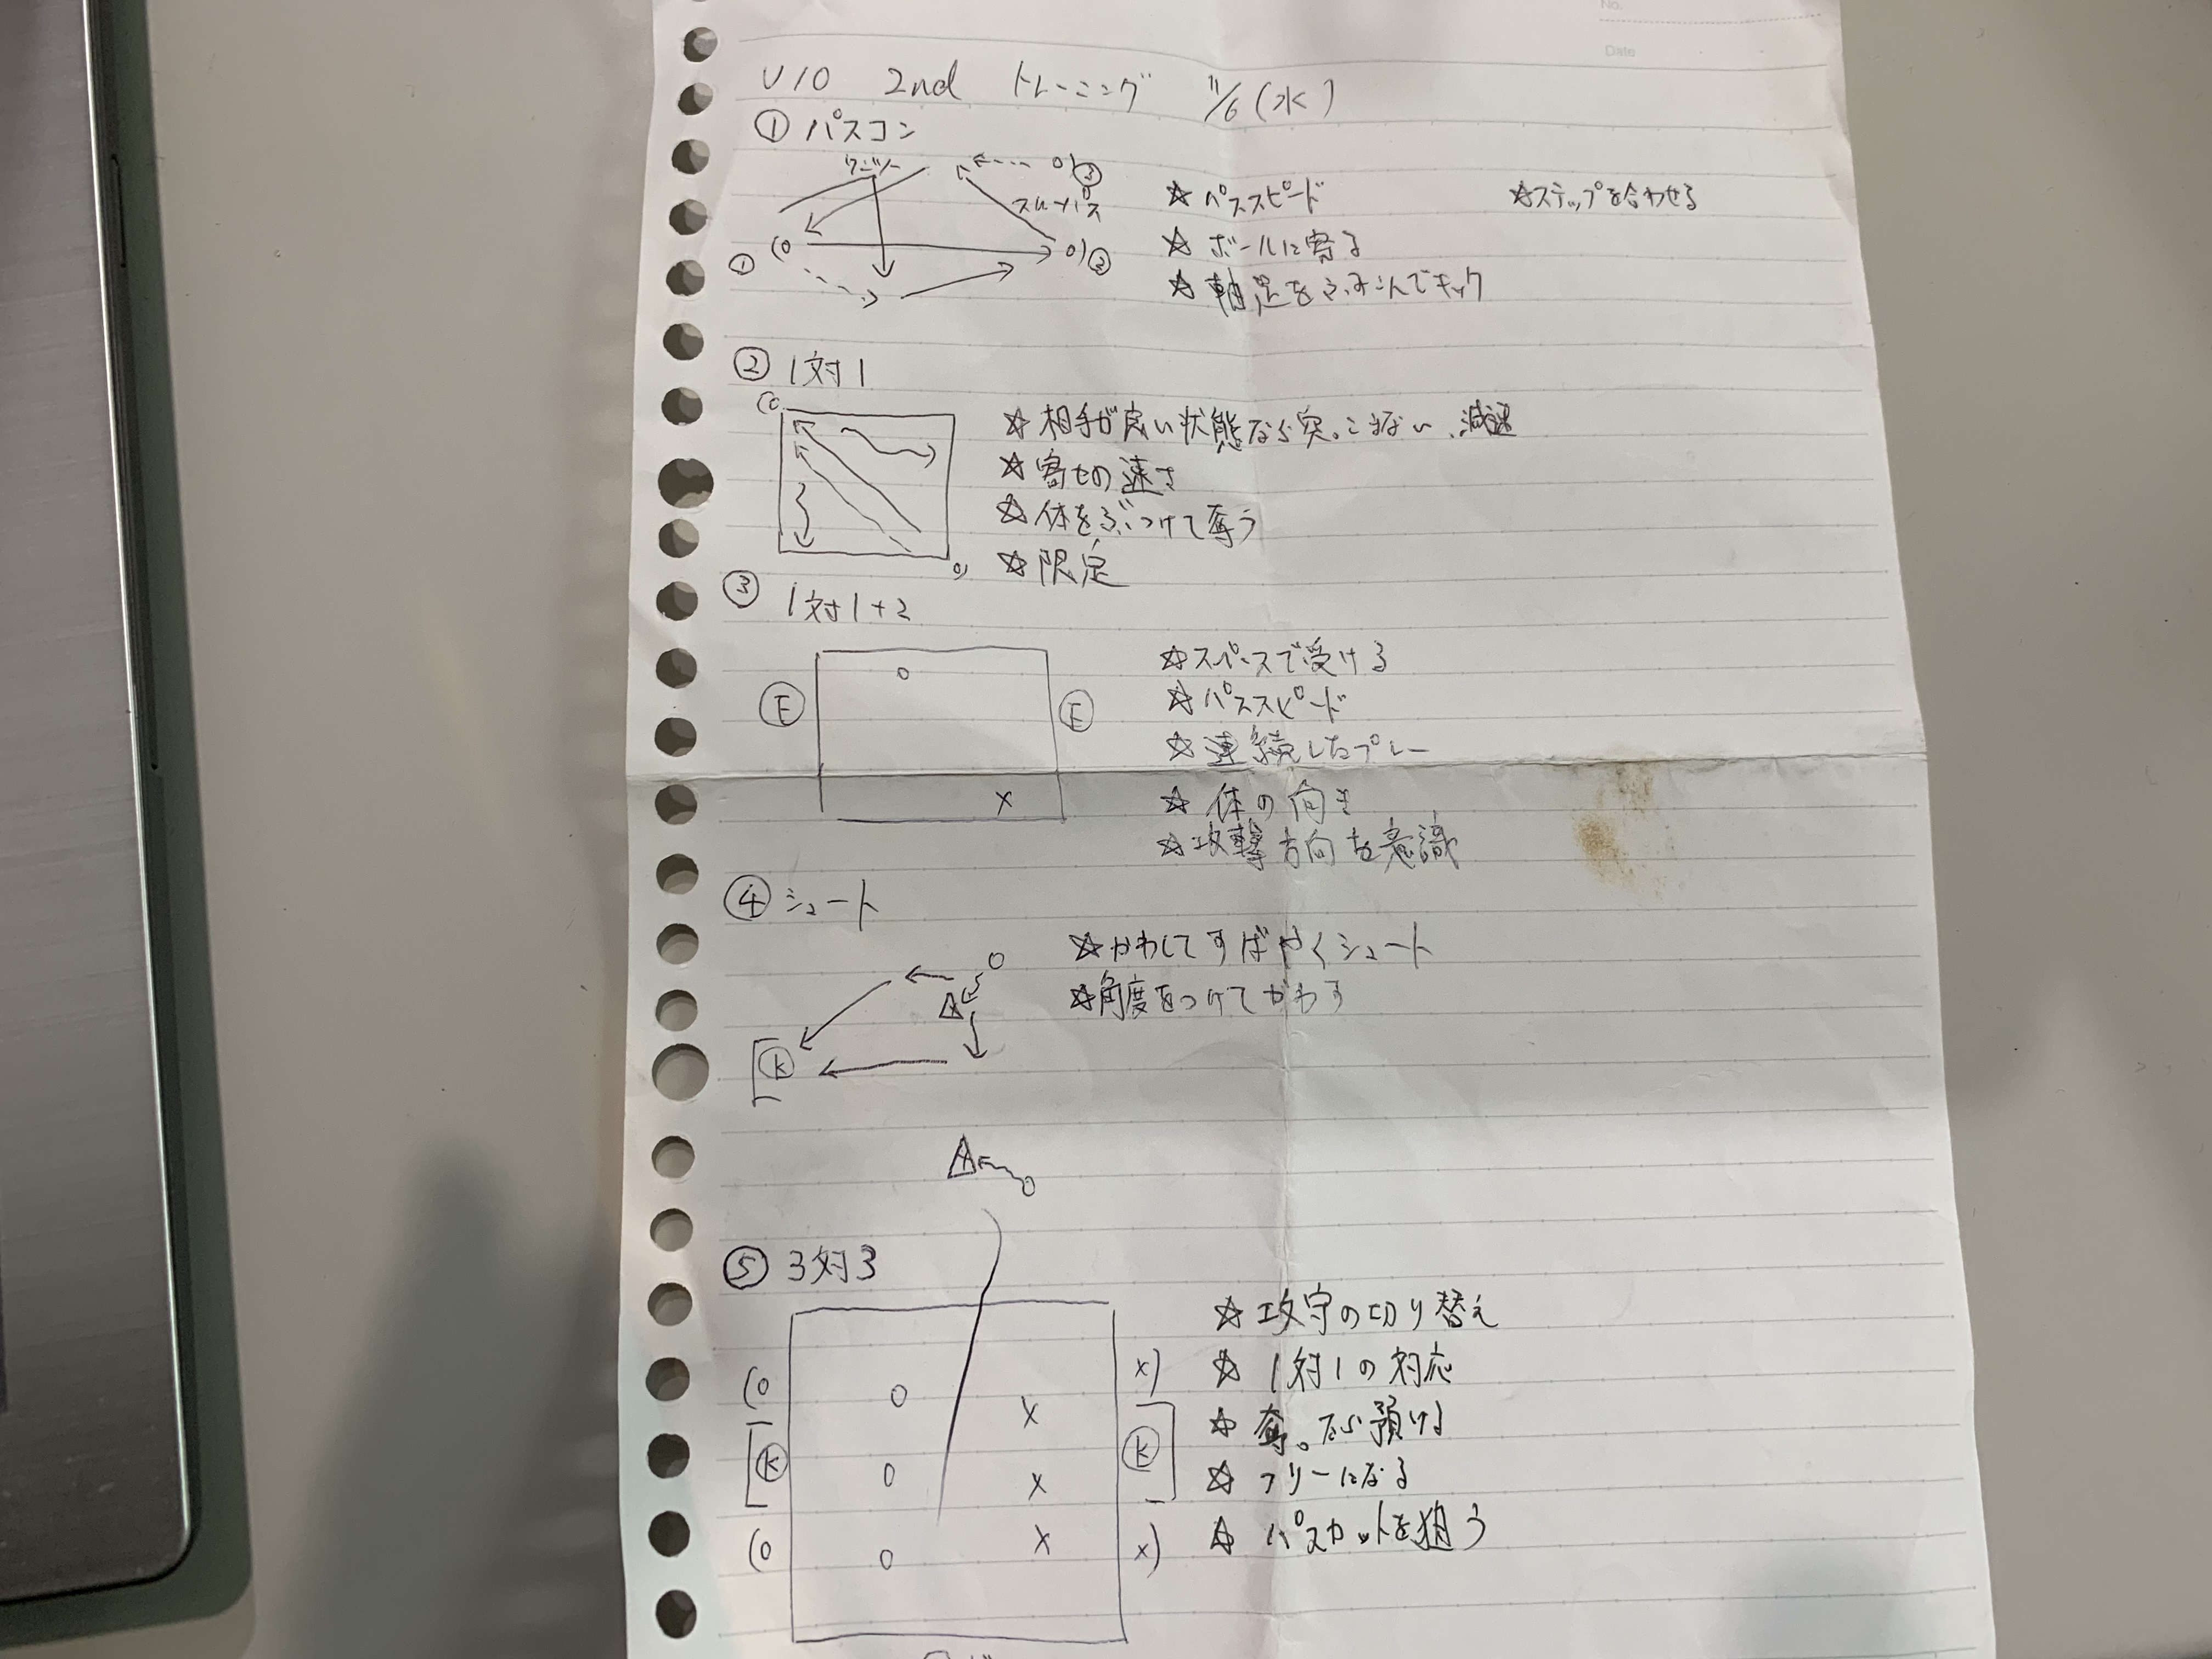 No.
Date
U10 2nd トレーニング 11/6(水)
① パスコン
ワンツー
③
スルーパス
①
②
☆パススピード
☆ステップを合わせる
☆ボールに寄る
☆軸足をふみこんでキック
② 1対1
☆相手が良い状態なら突っこまない、減速
☆寄せの速さ
☆体をぶつけて奪う
☆限定
③ 1対1+2
F
F
☆スペースで受ける
☆パススピード
☆連続したプレー
☆体の向き
☆攻撃方向を意識
④ シュート
☆かわしてすばやくシュート
☆角度をつけてかわす
K
⑤ 3対3
K
K
☆攻守の切り替え
☆1対1の対応
☆奪ったら預ける
☆フリーになる
☆パスカットを狙う